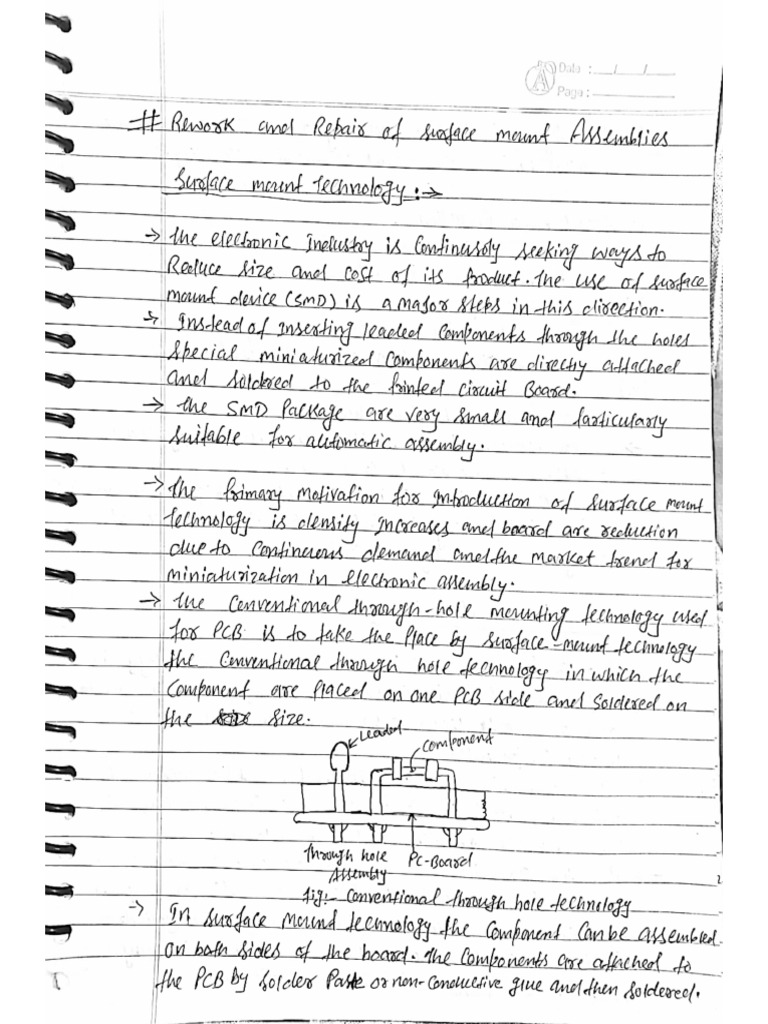 Date : __/__/__
Page :
# Rework and Repair of surface mount Assemblies
Surface mount technology :→
→ the electronic industry is continusoly seeking ways to
Reduce size and cost of its product. The use of surface
mount device (SMD) is a major steps in this direction.
→ Instead of inserting leaded components through the holes
special miniaturized components are directly attached
and soldered to the printed circuit Board.
→ the SMD Package are very small and particularly
suitable for automatic assembly.
→ the primary motivation for introduction of surface mount
technology is density increases and board are reduction
due to continuous demand and the market trend for
miniaturization in electronic assembly.
→ the conventional through-hole mounting technology used
for PCB is to take the place by surface-mount technology
the conventional through hole technology in which the
component are placed on one PCB side and soldered on
the size.
Leaded
component
through hole
Assembly
PC-Board
fig:- conventional through hole technology
→ In surface mount technology the component can be assembled
on both sides of the board. The components are attached to
the PCB by solder Paste or non-conductive glue and then soldered.